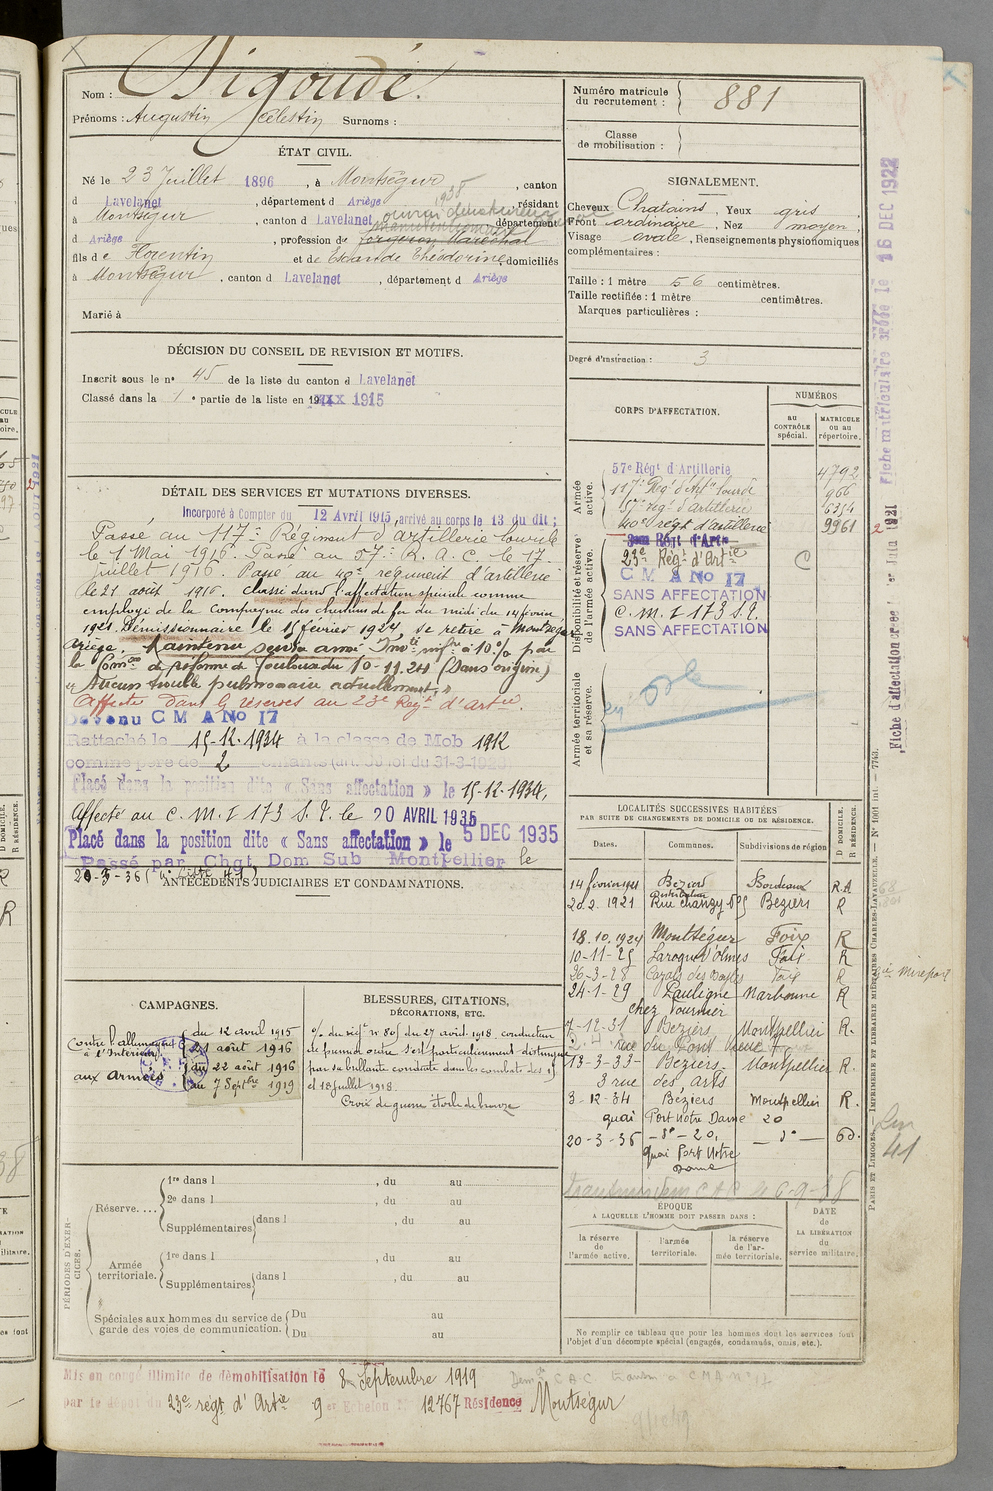 Nom : Digoudé.
Prénoms : Augustin Célestin Surnoms :
ÉTAT CIVIL.
Né le 23 Juillet 1896, à Montségur, canton
d Lavelanet, département d Ariège, résidant
à Montségur, canton d Lavelanet, département
1935
d Ariège, profession de forgeron Maréchal
fils de Florentin et de Escande Théodorine, domiciliés
à Montségur, canton d Lavelanet, département d Ariège
Marié à
DÉCISION DU CONSEIL DE REVISION ET MOTIFS.
Inscrit sous le nº 45 de la liste du canton d Lavelanet
Classé dans la 1e partie de la liste en 1915
DÉTAIL DES SERVICES ET MUTATIONS DIVERSES.
Incorporé à Compter du 12 Avril 1915, arrivé au corps le 13 du dit ;
Passé au 117e Régiment d'artillerie lourde
le 1 Mai 1916. Passé au 57e R. A. C. le 17
juillet 1916. Passé au 40e régiment d'artillerie
le 21 août 1916. Classé dans l'affectation spéciale comme
employé de la Compagnie des chemins de fer du midi du 14 février
1921. Démissionnaire le 15 février 1924 se retire à Montségur
Ariège. Maintenu service armé Inv. inf. à 10% par
la Comon de réforme de Toulouse du 10-11-24 (Sans origine)
"Aucun trouble pulmonaire actuellement"
Affecté dans les réserves au 23e Régt d'artie.
Devenu C M A No 17
Rattaché le 15-12-1934 à la classe de Mob 1912
comme père de 2 enfants (art. 58 loi du 31-3-1928)
Placé dans la position dite « Sans affectation » le 15-12-1934,
Affecté au C. M. I 173 S. R. le 20 AVRIL 1935
Placé dans la position dite « Sans affectation » le 5 DEC 1935
Passé par Chgt Dom Sub Montpellier le
20-3-36 (
ANTÉCÉDENTS JUDICIAIRES ET CONDAMNATIONS.
CAMPAGNES.
Contre l'allemagne
à l'Intérieur du 12 avril 1915
21 août 1916
aux armées du 22 août 1916
au 7 Septbre 1919
BLESSURES, CITATIONS,
DÉCORATIONS, ETC.
O/ du régt nº 80 du 27 avril 1918. conducteur
de premier ordre s'est particulièrement distingué
par sa brillante conduite dans les combats des 15
et 18 juillet 1918.
Croix de guerre étoile de bronze
PÉRIODES D'EXERCICES.
Réserve....
1re dans l , du au
2e dans l , du au
Supplémentaires dans l , du au
Armée
territoriale.
1re dans l , du au
Supplémentaires dans l , du au
Spéciales aux hommes du service de
garde des voies de communication.
Du au
Du au
Mis en congé illimité de démobilisation le 8 Septembre 1919
par le dépôt du 23e régt d'Artie 9e Echelon No 12767 Résidence Montségur
Numéro matricule
du recrutement : 881
Classe
de mobilisation :
SIGNALEMENT.
Cheveux Chatains, Yeux gris
Front ordinaire, Nez moyen,
Visage ovale, Renseignements physionomiques
complémentaires :
Taille : 1 mètre 56 centimètres.
Taille rectifiée : 1 mètre centimètres.
Marques particulières :
Degré d'instruction : 3
CORPS D'AFFECTATION.
NUMÉROS
AU
CONTRÔLE
spécial.
MATRICULE
ou au
répertoire.
Armée
active.
57e Régt d'Artillerie 4792
117e Régt d'Artie lourde 966
57e régt d'artillerie 6354
40e régt d'artillerie 9961
Disponibilité et réserve
de l'armée active.
23e Régt d'Artie C
C M A No 17
SANS AFFECTATION
C. M. I 173 S. R.
SANS AFFECTATION
Armée territoriale
et sa réserve.
LOCALITÉS SUCCESSIVES HABITÉES
PAR SUITE DE CHANGEMENTS DE DOMICILE OU DE RÉSIDENCE.
Dates. Communes. Subdivisions de région
D DOMICILE.
R RÉSIDENCE.
14 février 1921 Béziers Bordeaux R.A
20.2.1921 Rue Chanzy nº5 Béziers R
18.10.1924 Montségur Foix R
10-11-25 Laroque d'Olmes Foix R
26-3-28 Cazals des Bayles Foix R
24-1-29 Pauligne Narbonne R
chez Fournier
7-12-31 Béziers Montpellier R.
rue du Pont Vieux
13-3-33 Béziers Montpellier R.
3 rue des arts
3-12-34 Béziers Montpellier R.
quai Port Notre Dame 20
20-3-36 - dº - 20, - dº - D.
quai Port Notre
Dame
ÉPOQUE
A LAQUELLE L'HOMME DOIT PASSER DANS :
la réserve
de
l'armée active.
l'armée
territoriale.
la réserve
de l'armée territoriale.
DATE
de
LA LIBÉRATION
du
service militaire.
Ne remplir ce tableau que pour les hommes dont les services font
l'objet d'un décompte spécial (engagés, condamnés, omis, etc.).
Fiche d'affectation créée le 1er Juin 1921
Fiche matriculaire créée le 16 DEC 1922
PARIS ET LIMOGES. — IMPRIMERIE ET LIBRAIRIE MILITAIRES CHARLES-LAVAUZELLE. — Nº 1001 int. — 7743.
à Mirepoix
41